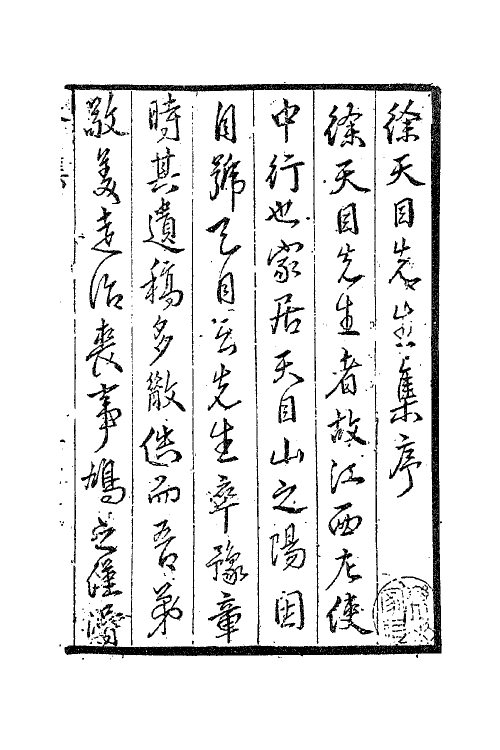 徐天目先生集序
徐天目先生者故江西左使
中行也家居天目山之陽因
自號天目云先生卒豫章
時其遺稿多散佚而吾弟
敬美走治喪事鳩之僅得